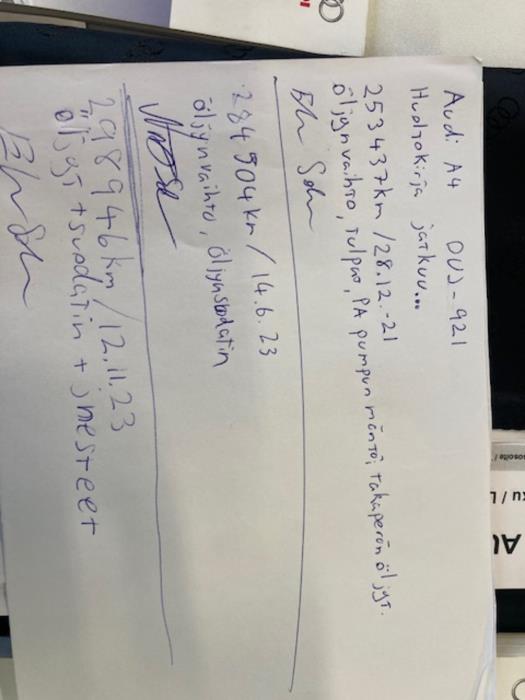 Audi A4 DUJ-921
Huoltokirja jatkuu...
253437km/28.12.-21
öljynvaihto, tulpat, PA pumpun mäntä, takaperän öljyt.
284904km/14.6.23
öljynvaihto, öljynsuodatin
298946km/12.11.23
öljyt + suodatin + jnesteet